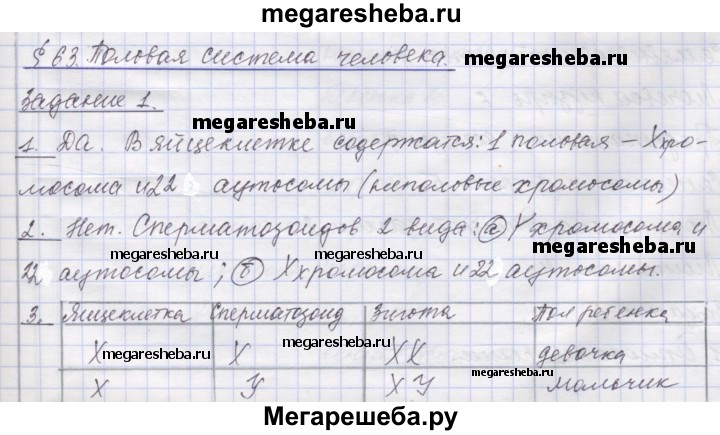 megaresheba.ru
§ 63. Половая система человека. megaresheba.ru
Задание 1.
megaresheba.ru
1. Да. В яйцеклетке содержатся: 1 половая – X хро-
мосома и 22 аутосомы (неполовые хромосомы)
2. Нет. Сперматозоидов 2 вида: а) Y хромосома и
megaresheba.ru
22 аутосомы; б) X хромосома и 22 аутосомы.
megaresheba.ru megaresheba.ru
3. Яйцеклетка Сперматозоид Зигота Пол ребенка
X X XX девочка
megaresheba.ru megaresheba.ru
X У XУ мальчик
Мегарешеба.ру